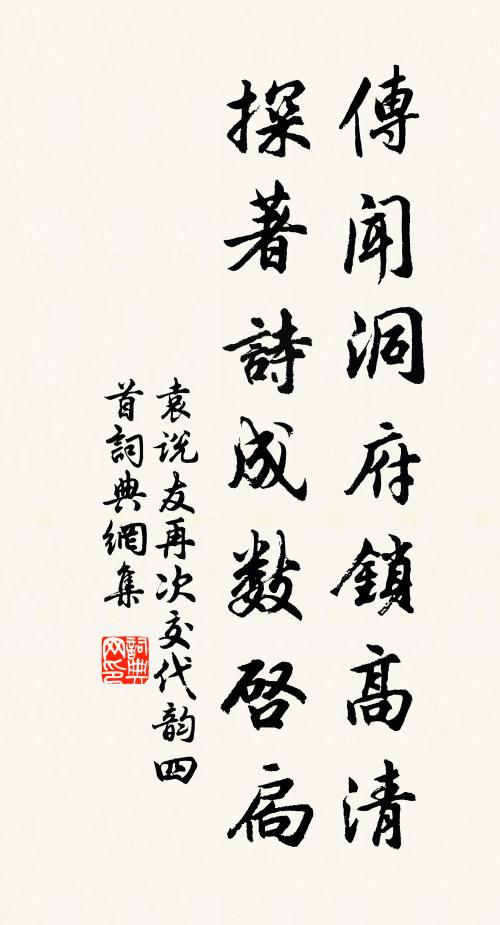 傳聞洞府鎖高清
探著詩成数啓扃
袁说友再次交代韵四
首詞典網集
詞典
网印